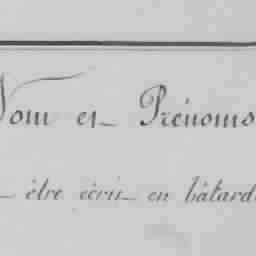 Nom et Prénoms
être écrit en bâtard